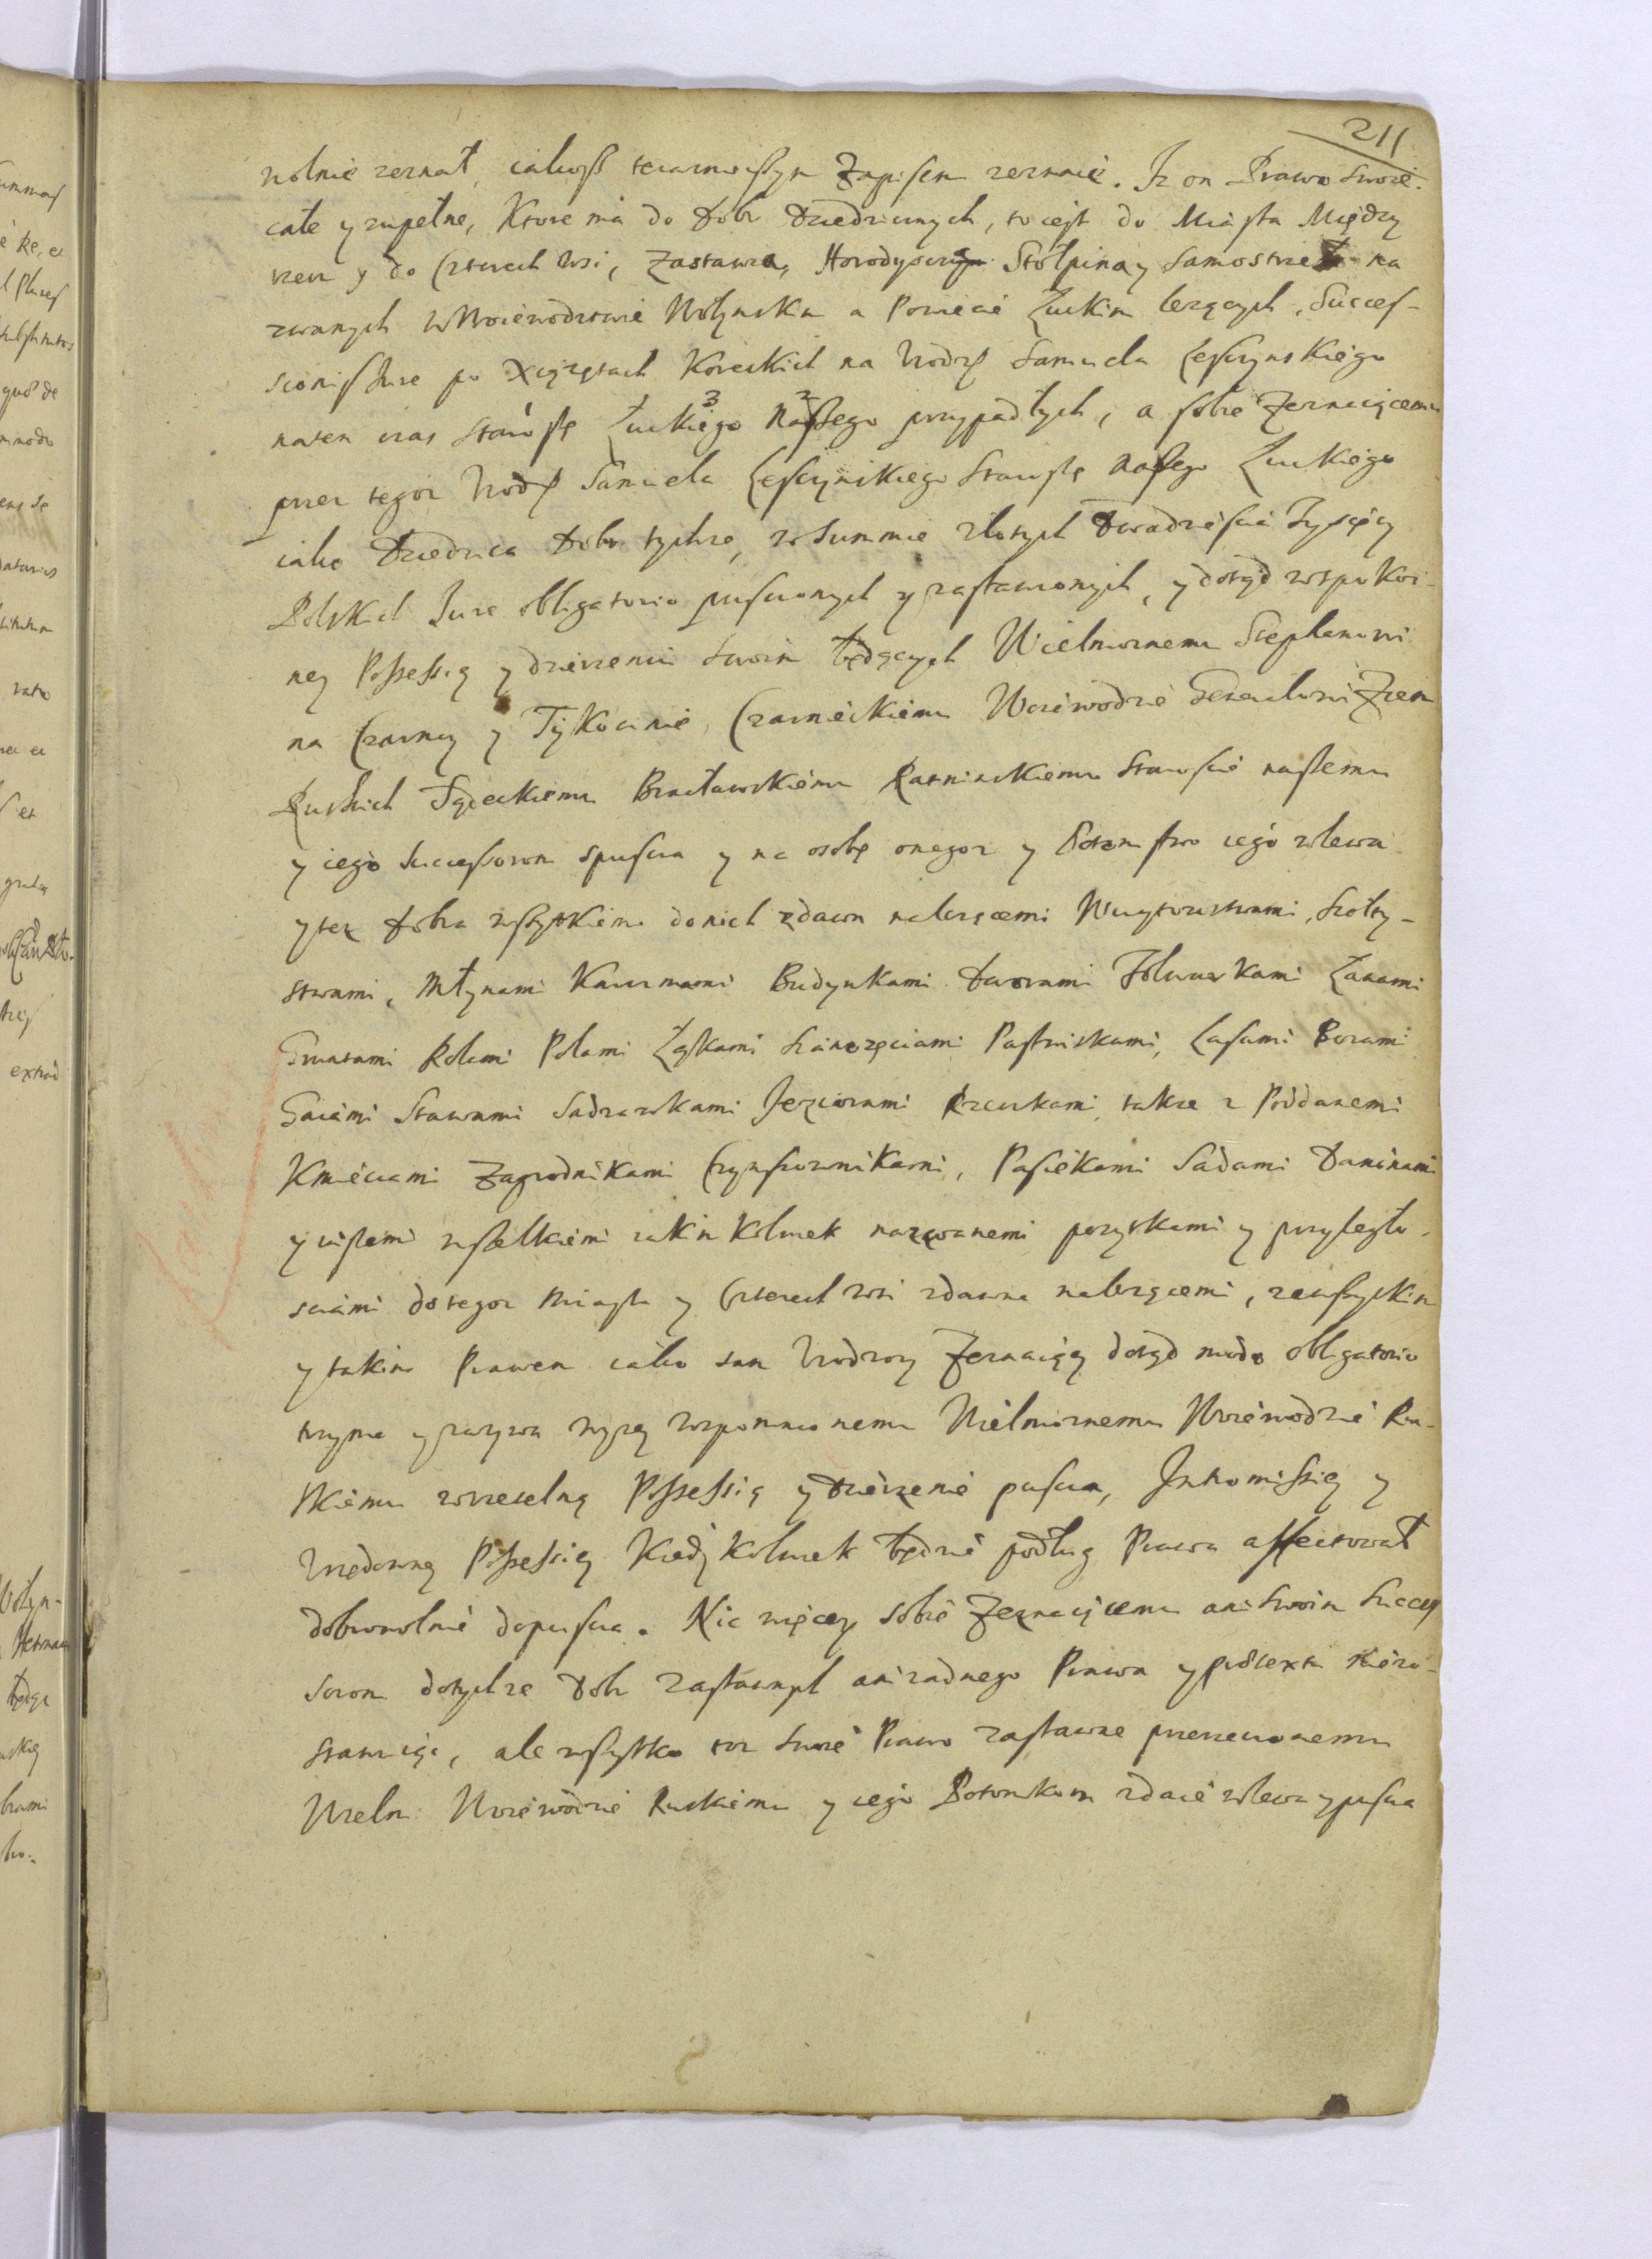 211
wolnie zeznał, iakosz teraznieyszym Zapisem zeznaie. Iz on Prawo swoie
całe y zupełne, Ktore ma do Dobr Dziedzicznych, to iest do Miasta Między
rzecz y do Czterech Wsi, Zastawia, Horodyscza Stołpina y Samostrzeł na
zwanych w Woiewodztwie Wołynskim a Powiecie Łuckim lezących, Succes-
sionis Jure po Xiążętach Koreckich na Urodz Samuela Leszczynskiego
naten czas Starostę Łuckiego Naszego przypadłych, a sobie Zeznaiącemu
przez tegoz Urodz Samuela Leszczynskiego Starostę Naszego Łuckiego
iako Dziedzica Dobr tychze, w Summie złotych Dwadziescia Tysięcy
Polskich Jure obligatorio pusczonych y zastawionych, y dotąd w spokoi-
ney Possessią y dzierzeniu swoim będących Wielmoznemu Stephanowi
na Czarncy y Tykocinie, Czarnieckiemu Woiewodzie Generałowi Ziem
Ruskich Sądeckiemu Bracławskiemu Ratninskiemu Staroscie naszemu
y iego Successorom spuscza y na osobę onegoz y Potomstwo iego wlewa
y tez Dobra wszytkiemi do nich zdawna nalezącemi Woytowstwami, Szołty-
stwami, Młynami Karczmami Budynkami Dworami Folwarkami Łanami
Gruntami Rolami Polami Łąkami Sianozęciami Pastwiskami, Lasami Borami
Gaiami Stawami Sadzawkami Jeziorami Rzeczkami, takze z Poddanemi
Kmieciami Zagrodnikami Czynszownikami, Pasiekami Sadami Daninami
y inszemi wszelkiemi iakim kolwiek nazwanemi pozytkami y przyległo-
sciami do tegoz Miasta y Czterech wsi zdawna nalezącemi, ze wszytkim
y takim Prawem iako sam Urodzony Zeznaiący dotąd modo obligatorio
trzyma y zazywa wyzey wspomnionemu Wielmoznemu Woiewodzie Ru-
skiemu w rzetelną Possessią y Dzierzenie puscza, Intromissią y
Urzędowną Possessią Kiedy Kolwiek będzie podług Prawa affectował
dobrowolnie dopuscza. Nic więcey sobie Zeznaiącemu ani swoim Succes
sorom do tychze Dobr Zastawnych ani zadnego Prawa y praetextu niezo-
stawuiąc, ale wszytko toz swoie Prawo zastawne przerzeczonemu
Wielm: Woiewodzie Ruskiemu y iego Potomkom zdaie wlewa y puscza